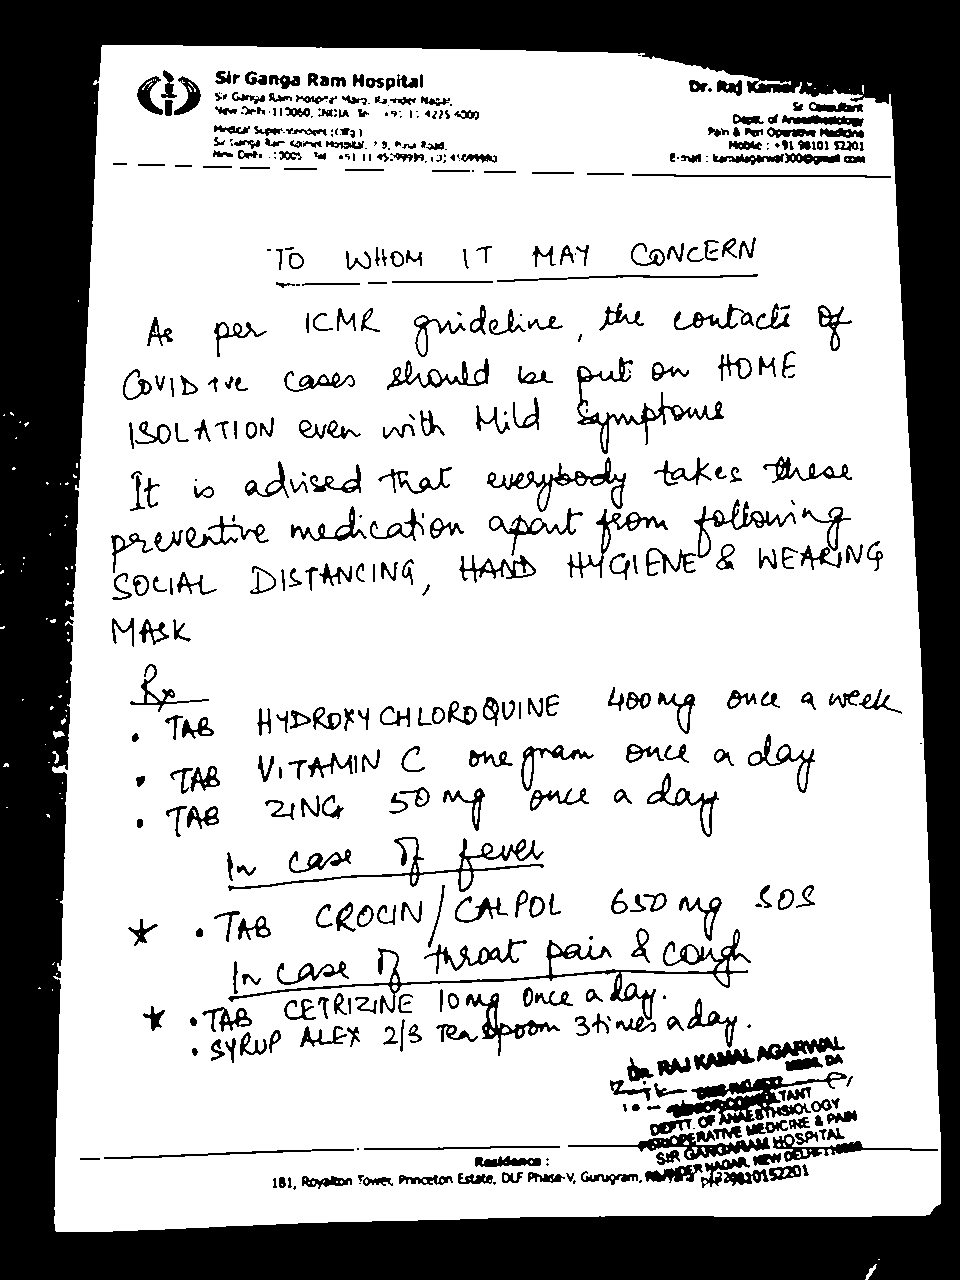 Sir Ganga Ram Hospital
Sir Ganga Ram Hospital Marg, Rajinder Nagar,
New Delhi-110060, INDIA Tel : +91 11 4225 4000
Medical Superintendent (Offg.)
Sir Ganga Ram Kolmet Hospital, 7 B, Pusa Road,
New Delhi - 110005 Tel +91 11
Dr. Raj Kamal Agarwal
Sr. Consultant
Deptt. of Anaesthesiology
Pain & Peri Operative Medicine
Mobile : +91 98101 52201
E-mail : kamalagarwal300@gmail.com
TO WHOM IT MAY CONCERN
As per ICMR guideline, the contacts of
COVID +ve cases should be put on HOME
ISOLATION even with Mild Symptoms
It is advised that everybody takes these
preventive medication apart from following
SOCIAL DISTANCING, HAND HYGIENE & WEARING
MASK
Rx
• TAB HYDROXYCHLOROQUINE 400mg once a week
• TAB VITAMIN C one gram once a day
• TAB ZINC 50 mg once a day
In case of fever
★ • TAB CROCIN/CALPOL 650 mg SOS
In case of throat pain & cough
★ • TAB CETRIZINE 10mg Once a day.
• SYRUP ALEX 2/3 Tea spoom 3 times a day.
Dr. RAJ KAMAL AGARWAL
MBBS, DA
SENIOR CONSULTANT
DEPTT. OF ANAESTHSIOLOGY
PERIOPERATIVE MEDICINE & PAIN
SIR GANGARAM HOSPITAL
RAJINDER NAGAR, NEW DELHI-110060
9810152201
Residence :
181, Royalton Tower, Princeton Estate, DLF Phase-V, Gurugram,